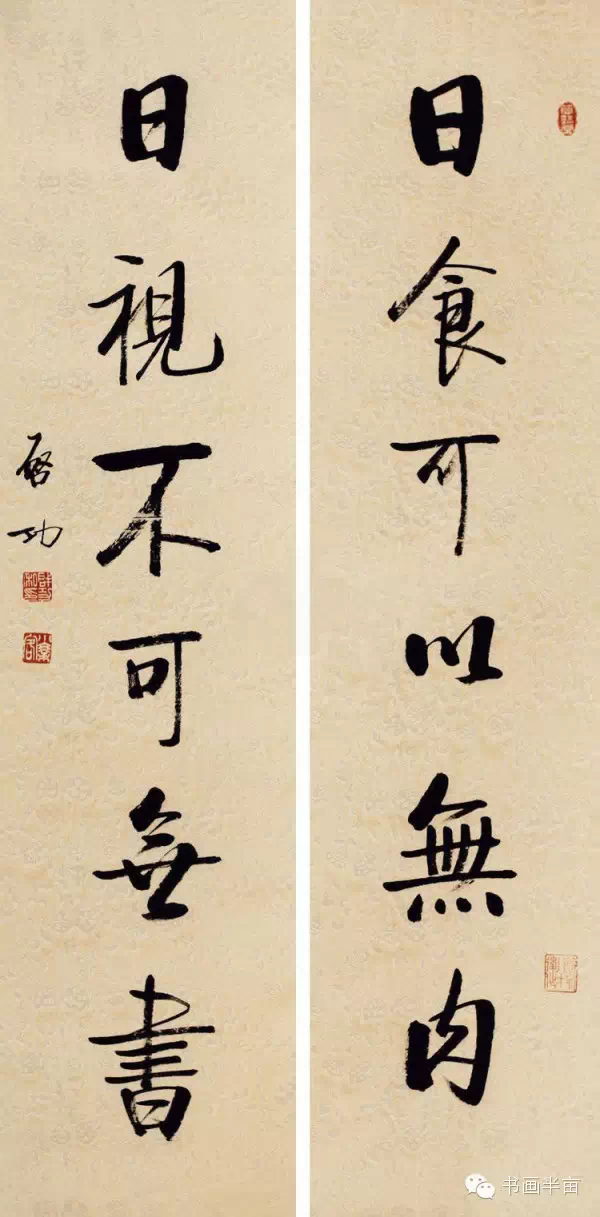 日食可以無肉
日視不可無書
啓功
书画半亩